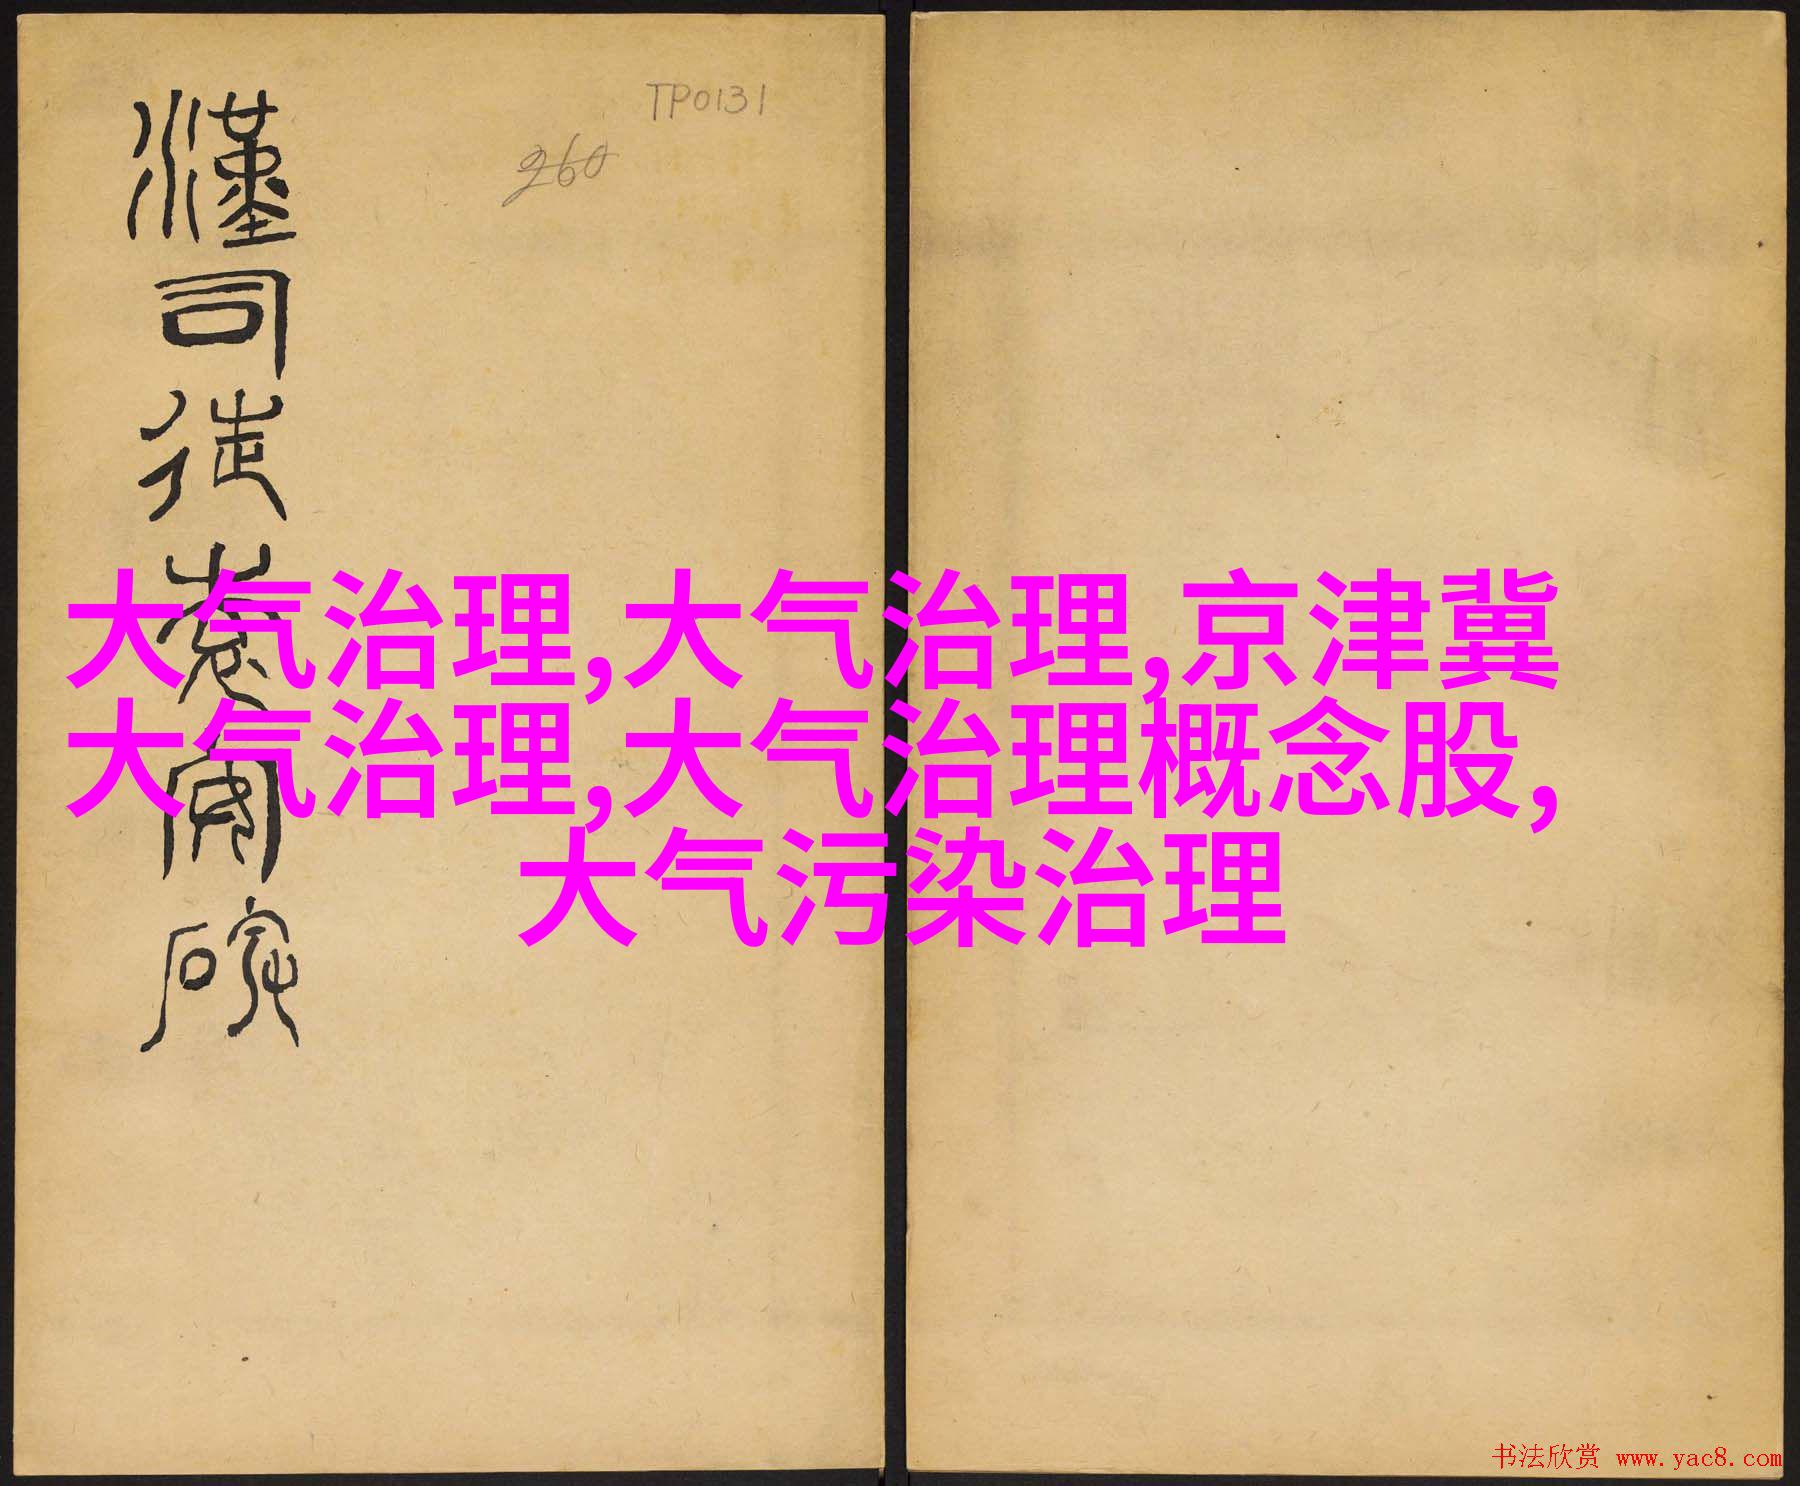 漢司徒袁安碑
TP0131
260
大气治理,大气治理,京津冀
大气治理,大气治理概念股,
大气污染治理
书法欣赏 www.yac8.com